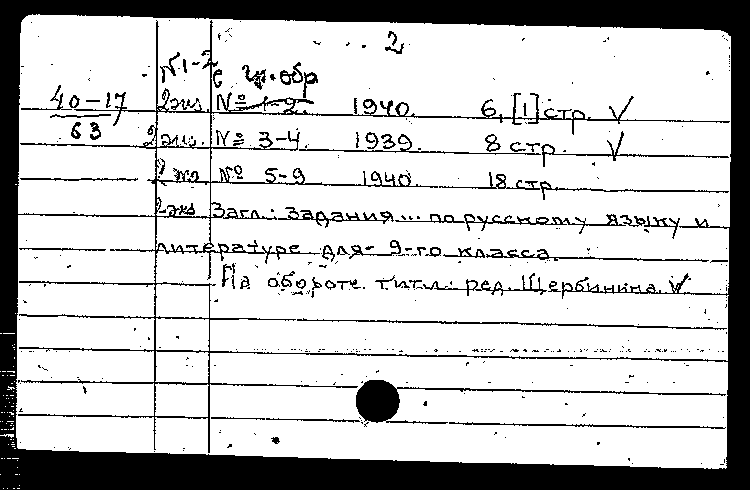 2
N 1-2 с
40-17 2 экз. № 1-2. 1940. 6, [1] стр. V
63 2 экз. № 3-4. 1939. 8 стр. V
2 экз № 5-9 1940. 18 стр.
2 экз Загл.: Задания... по русскому языку и
литературе для 9-го класса.
На обороте. титл.: ред. Щербинина. V